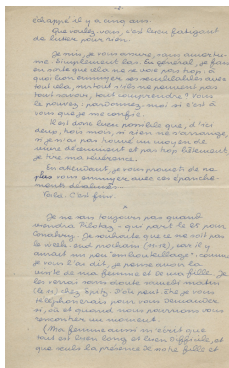 -2-
échappé il y a cinq ans.
Que voulez-vous, c'est bien fatigant
de lutter pour rien.
Je suis, je vous assure, sans amertu-
me. Simplement las. En général, je fais
en sorte que cela ne se voie pas trop. à
quoi bon ennuyer ses semblables avec
tout cela, surtout s'ils ne peuvent pas
tout savoir, tout comprendre? Vous
le pouvez: pardonnez-moi si c'est à
vous que je me confie.
Il est donc bien possible que, d'ici
deux, trois mois, si rien ne s'arrange,
si je n'ai pas trouvé un moyen de
vivre décemment et pas trop bêtement,
je tire ma révérence.
En attendant, je vous promets de ne
plus vous ennuyer avec ces épanche-
ments
Voilà. C'est fini.
*
Je ne sais toujours pas quand
viendra qui part le 25 pour
Je souhaite que ce ne soit pas
le week-end prochain car il y
aurait un peu embouteillage: comme
je vous l'ai dit, je pense avoir la
visite de ma femme et de ma fille. Je
les verrai sans doute mardi matin
chez Spitz. D'où peut-être je vous
téléphonerais pour vous demander
si, où et quand nous pourrions nous
rencontrer un moment.
(Ma femme aussi m'écrit que
tout est bien long et bien difficile, et
que seule la présence de notre fille et